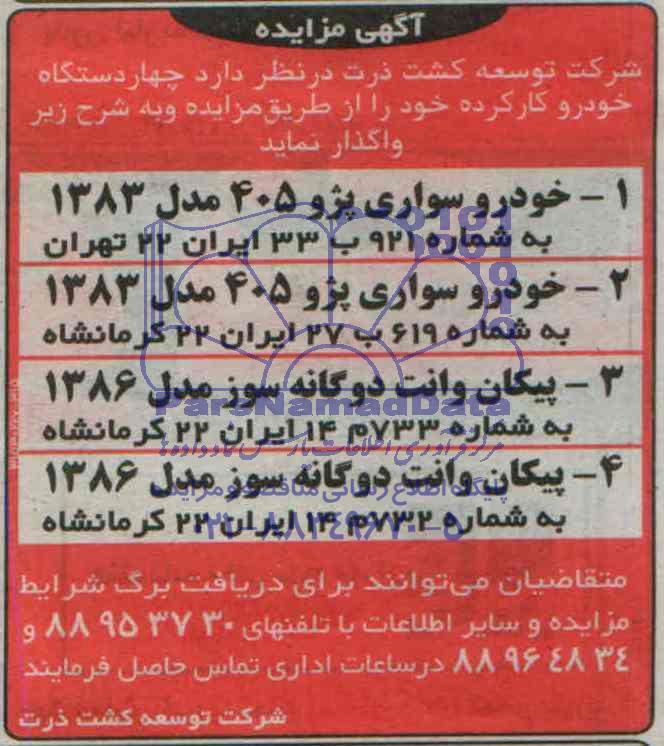 آگهی مزایده
شرکت توسعه کشت ذرت درنظر دارد چهاردستگاه
خودرو کارکرده خود را از طریق مزایده وبه شرح زیر
واگذار نماید
۱ – خودرو سواری پژو ۴۰۵ مدل ۱۳۸۳
به شماره ۹۲۱ ب ۳۳ ایران ۲۲ تهران
۲ – خودرو سواری پژو ۴۰۵ مدل ۱۳۸۳
به شماره ۶۱۹ ب ۲۷ ایران ۲۲ کرمانشاه
۳ – پیکان وانت دوگانه سوز مدل ۱۳۸۶
ParsNamadData
به شماره ۷۳۳م ۱۴ ایران ۲۲ کرمانشاه
مرکز فرآوری اطلاعات پارس نماد داده ها
۴ – پیکان وانت دوگانه سوز مدل ۱۳۸۶
پایگاه اطلاع رسانی مناقصه و مزایده
به شماره ۷۳۲م ۱۴ ایران ۲۲ کرمانشاه
۰۲۱-۸۸۳۴۹۶۷۰-۵
متقاضیان می‌توانند برای دریافت برگ شرایط
مزایده و سایر اطلاعات با تلفنهای ۳۰ ۳۷ ۹۵ ۸۸ و
۳۴ ۴۸ ۹۶ ۸۸ درساعات اداری تماس حاصل فرمایند
شرکت توسعه کشت ذرت